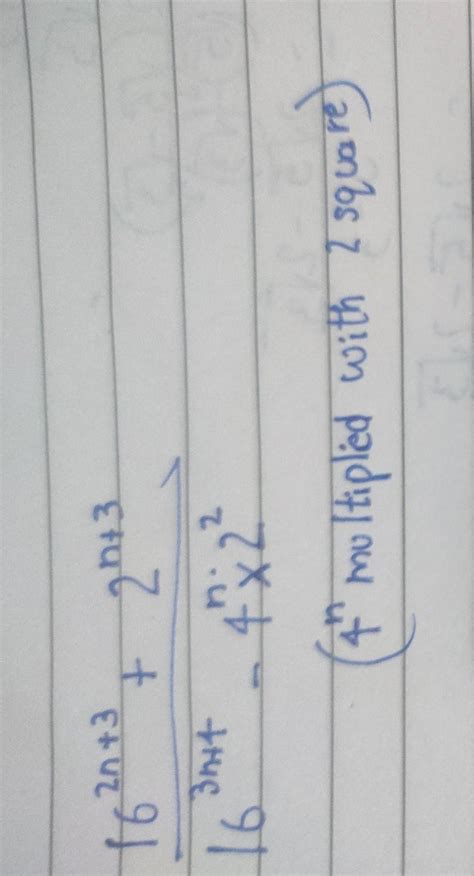 16^{2n+3} + 2^{n+3}
16^{3n+4} - 4^{n} \cdot × 2^{2}
(4^{n} multiplied with 2 square)